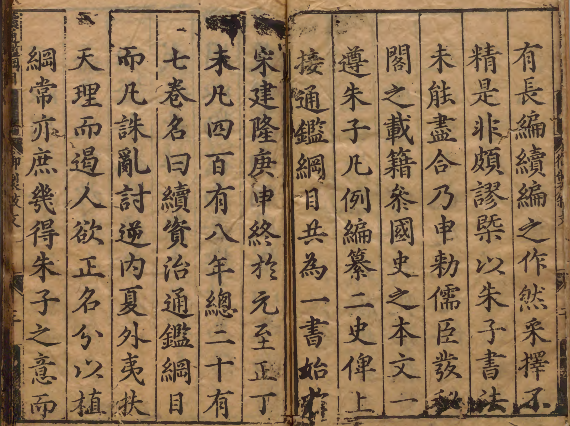 有長編續編之作然采擇不
精是非頗謬槩以朱子書法
未能盡合乃申勑儒臣發
閣之載籍叅國史之本文一
遵朱子凡例編纂二史俾上
接通鑑綱目共為一書始
宋建隆庚申終於元至正丁
未凡四百有八年總二十有
七卷名曰續資治通鑑綱目
而凡誅亂討逆內夏外夷扶
天理而遏人欲正名分以植
綱常亦庶幾得朱子之意而